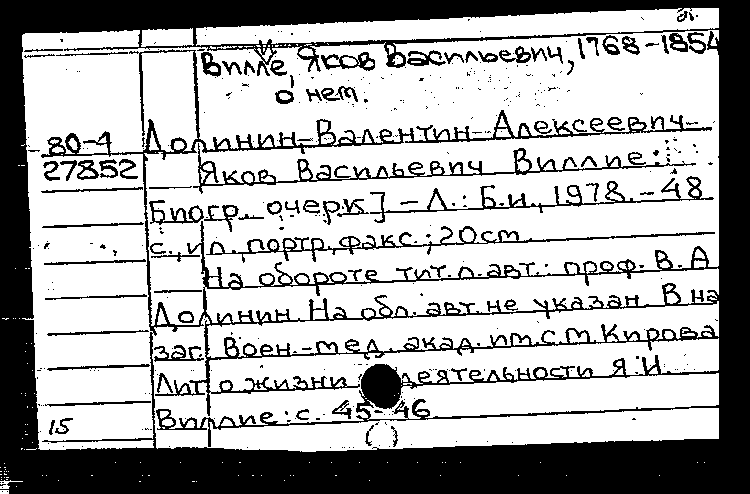 Вилле, Яков Васильевич, 1768-1854
о нем.
80-4 Долинин, Валентин Алексеевич
27852 Яков Васильевич Виллие:
Биогр. очерк] - Л.: Б.и., 1978. - 48
с., ил., портр., факс.; 20 см
На обороте тит. л. авт.: проф. В. А
Долинин. На обл. авт. не указан. В на
заг. Воен.-мед. акад. им. С. М. Кирова
Лит. о жизни деятельности Я. И
Виллие: с. 45-46
15